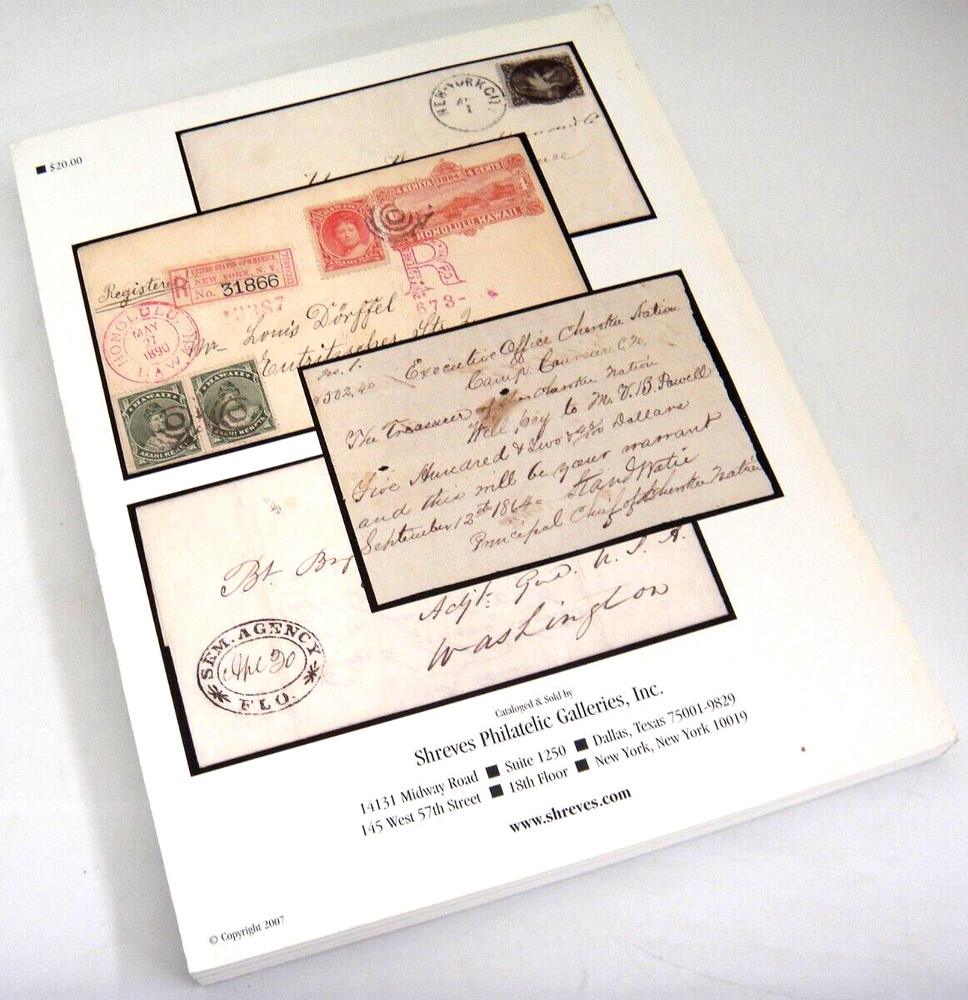 ■ $20.00
NEW-YORK CITY
1
4 KENETA 1884 4 CENTS
HONOLULU, HAWAII
UNITED STATES OF AMERICA
R NEW YORK, N.Y.
No. 31866
Registered
R
673-
HONOLULU
MAY
27
1890
HAWAII
Mr Louis Dörffel
Eutritzscher Str. 2
HAWAII HAWAII
AKAHI KENETA AKAHI KENETA
No. 1.
$502,40 Executive Office Cherokee Nation
Camp Canvasier C.N.
The Treasurer of the Cherokee Nation
Will pay to Mr. V. B. Powell
Five Hundred & Two & 40/100 Dollars
and this will be your warrant
September 12th 1864 Stand Watie
Principal Chief of Cherokee Nation
Bt. Brg
Adjt. Genl. U. S. A.
Washington
SEM. AGENCY
Apl 30
FLO.
Cataloged & Sold by
Shreves Philatelic Galleries, Inc.
14131 Midway Road ■ Suite 1250 ■ Dallas, Texas 75001-9829
145 West 57th Street ■ 18th Floor ■ New York, New York 10019
www.shreves.com
© Copyright 2007